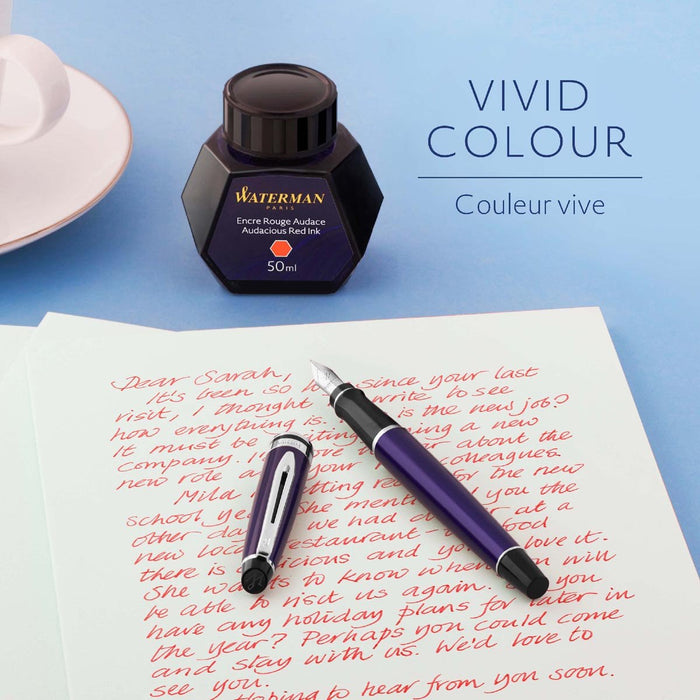 VIVID
COLOUR
Couleur vive
WATERMAN
PARIS
Encre Rouge Audace
Audacious Red Ink
50ml
Dear Sarah,
It's been so since your last
visit, I thought write to see
how everything is. is the new job?
It must be a new
company. about the
new role your colleagues.
Mild for the new
school you the
other we had at a
new restaurant food
there is and love it.
She to know when will
be able to visit us again. you
have any holiday plans for later in
the year? Perhaps you could come
and stay with us. We'd love to
see you.
Hoping to hear from you soon.